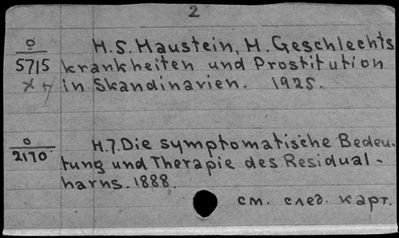 2
o
5715
H.S. Haustein, H. Geschlechts
krankheiten und Prostitution
in Skandinavien. 1925.
o
2170
H.7. Die symptomatische Bedeu-
tung und Therapie des Residual-
harns. 1888.
см. след. карт.